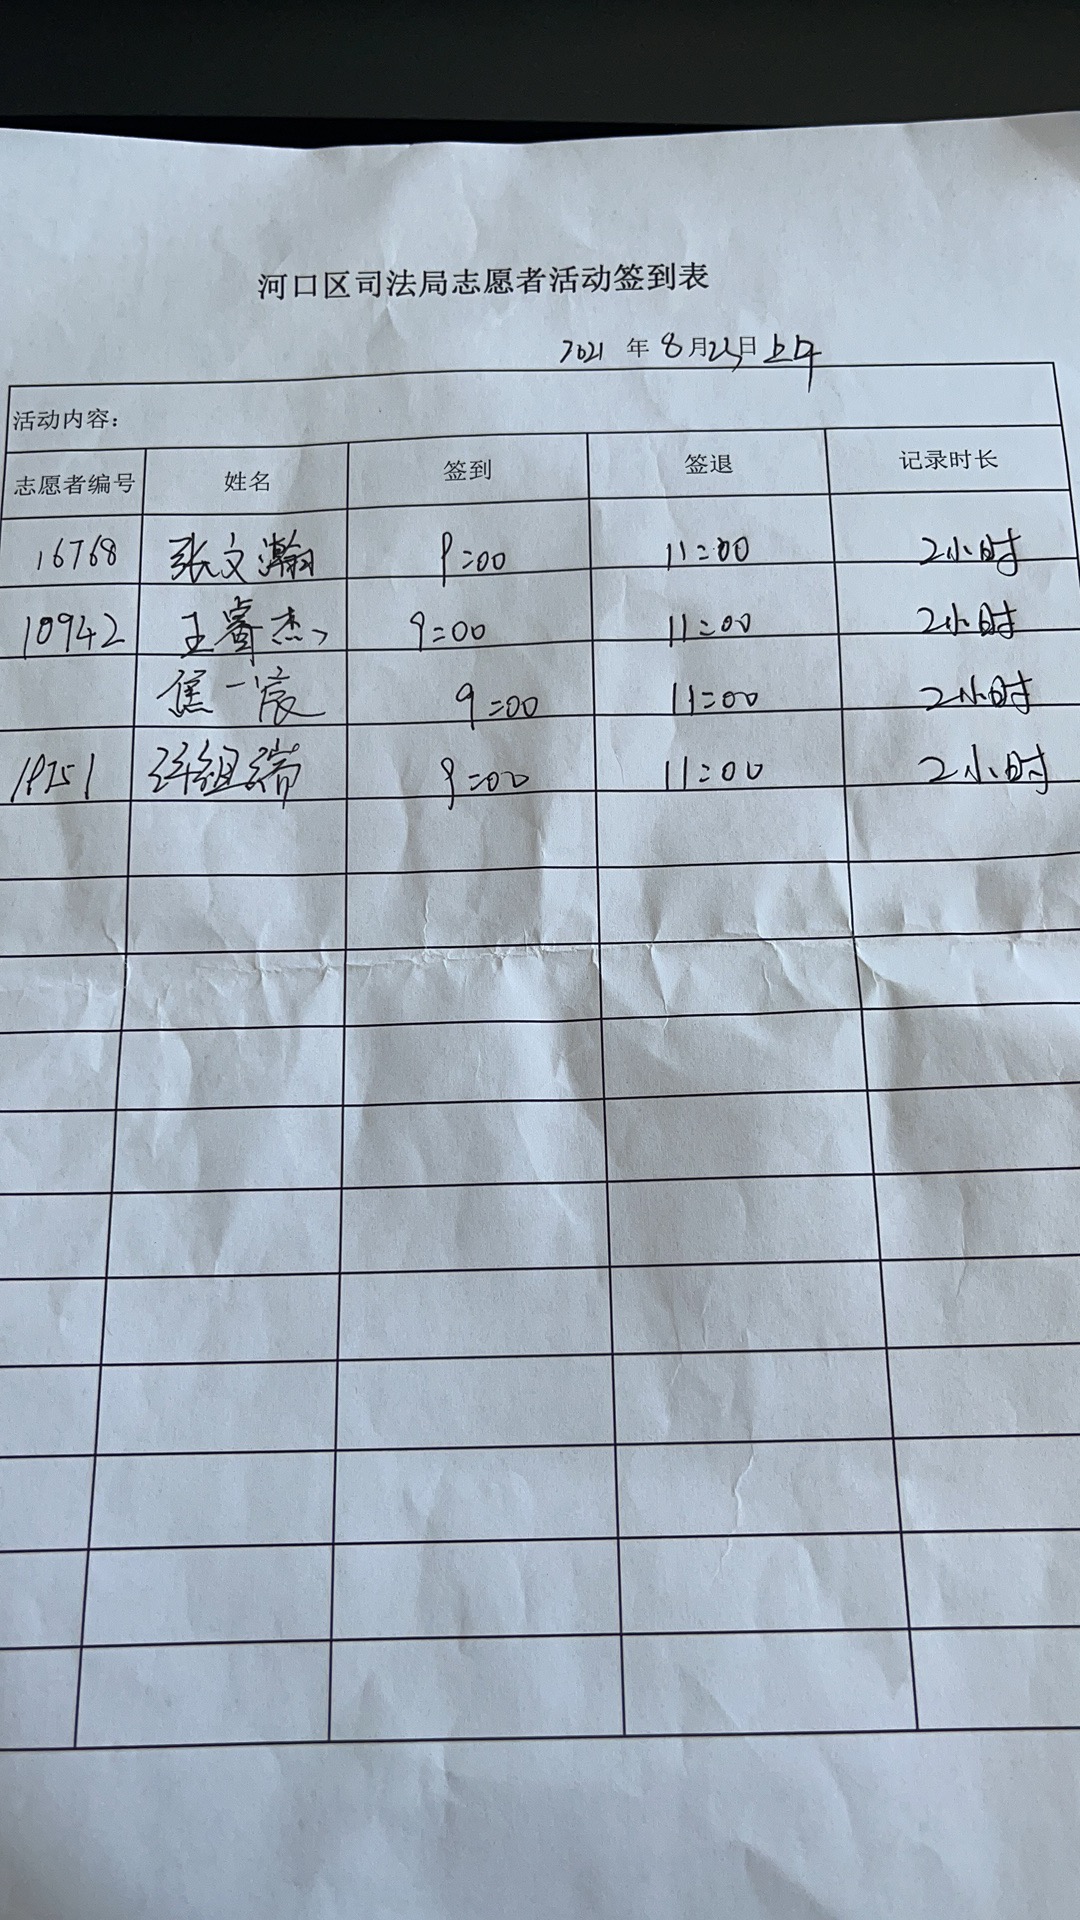 河口区司法局志愿者活动签到表
2021 年 8月23日上午
活动内容：
志愿者编号 姓名 签到 签退 记录时长
16768 张文瀚 9:00 11:00 2小时
10942 王睿杰 9:00 11:00 2小时
焦一宸 9:00 11:00 2小时
许組瑞 9:00 11:00 2小时